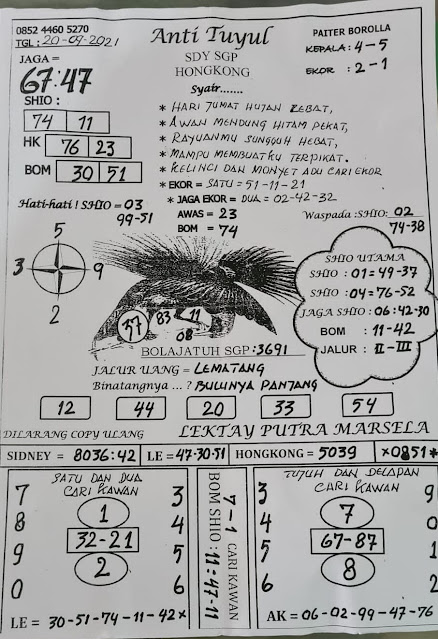 0852 4460 5270
TGL : 20-09-2021
Anti Tuyul
SDY SGP
HONGKONG
PAITER BOROLLA
KEPALA : 4-5
EKOR : 2-1
JAGA =
67:47
SHIO :
74 11
HK 76 23
BOM 30 51
Syair.......
* HARI JUMAT HUJAN LEBAT,
* AWAN MENDUNG HITAM PEKAT,
* RAYUANMU SUNGGUH HEBAT,
* MAMPU MEMBUATKU TERPIKAT.
* KELINCI DAN MONYET ADU CARI EKOR
* EKOR = SATU = 51-11-21
* JAGA EKOR = DUA = 02-42-32
Hati-hati ! SHIO = 03
99-51
AWAS = 23
BOM = 74
Waspada :SHIO: 02
74-38
5
3 9
2
37 83 11
08
BOLAJATUH SGP : 3691
SHIO UTAMA
SHIO : 01=49-37
SHIO : 04=76-52
JAGA SHIO : 06:42-30
BOM : 11-42
JALUR : II-III
JALUR UANG = LEMATANG
Binatangnya ... ? BULUNYA PANJANG
12 44 20 33 54
DILARANG COPY ULANG
LEKTAY PUTRA MARSELA
SIDNEY = 8036:42 LE =47-30-51 HONGKONG = 5039 *0851*
SATU DAN DUA
CARI KAWAN
7 1 3
8 4
9 32-21 5
0 2 6
LE = 30-51-74-11-42*
BOM SHIO : 11-47-11
7-1 CARI KAWAN
TUJUH DAN DELAPAN
CARI KAWAN
3 7 9
4 0
5 67-87 1
6 8 2
AK = 06-02-99-47-76